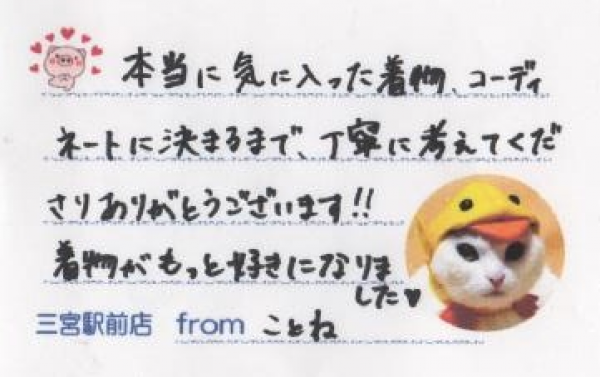 本当に気に入った着物、コーディ
ネートに決まるまで、丁寧に考えてくだ
さりありがとうございます!!
着物がもっと好きになりま
した♥
三宮駅前店 from ことね